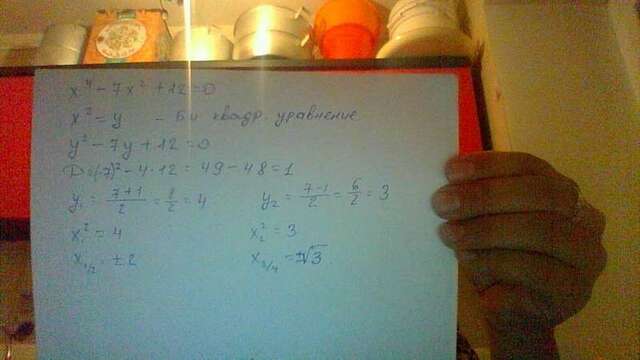 x⁴ - 7x² + 12 = 0
x² = y - би квадр. уравнение
y² - 7y + 12 = 0
D = (-7)² - 4·12 = 49 - 48 = 1
y₁ = (7+1)/2 = 8/2 = 4    y₂ = (7-1)/2 = 6/2 = 3
x₁² = 4    x₂² = 3
x₁/₂ = ±2    x₃/₄ = ±√3